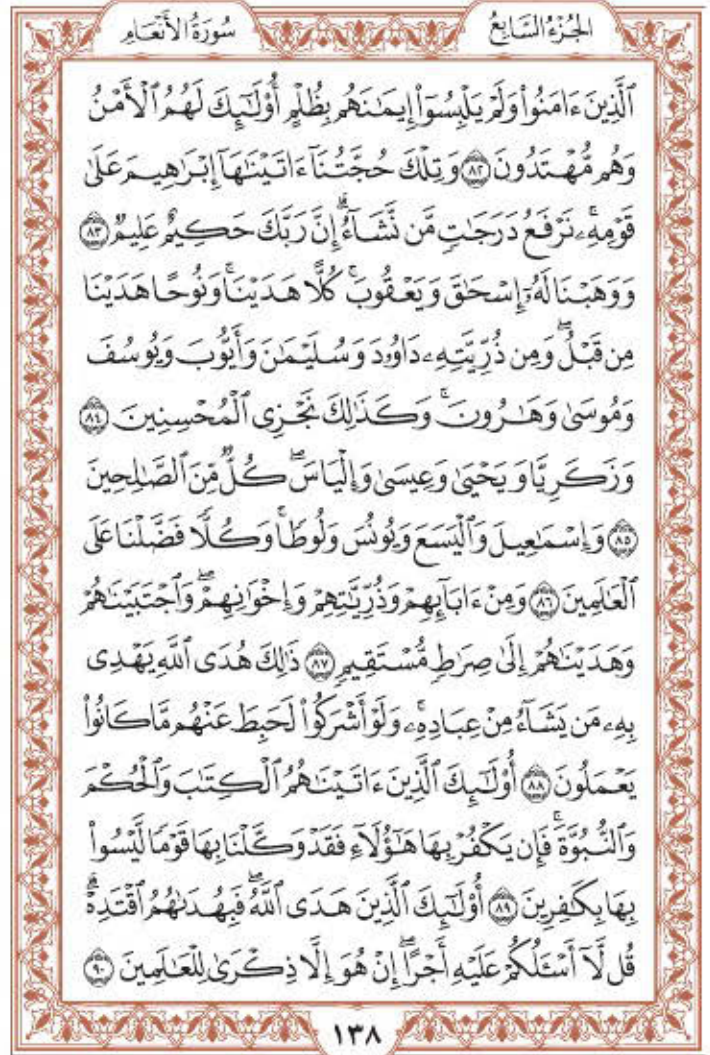 الجُزْءُ السَّابِعُ
سُورَةُ الأَنْعَامِ
ٱلَّذِينَ ءَامَنُوا۟ وَلَمْ يَلْبِسُوٓا۟ إِيمَٰنَهُم بِظُلْمٍ أُو۟لَٰٓئِكَ لَهُمُ ٱلْأَمْنُ
وَهُم مُّهْتَدُونَ ٨٢ وَتِلْكَ حُجَّتُنَآ ءَاتَيْنَٰهَآ إِبْرَٰهِيمَ عَلَىٰ
قَوْمِهِۦۚ نَرْفَعُ دَرَجَٰتٍ مَّن نَّشَآءُۗ إِنَّ رَبَّكَ حَكِيمٌ عَلِيمٌ ٨٣
وَوَهَبْنَا لَهُۥٓ إِسْحَٰقَ وَيَعْقُوبَۚ كُلًّا هَدَيْنَاۚ وَنُوحًا هَدَيْنَا
مِن قَبْلُۖ وَمِن ذُرِّيَّتِهِۦ دَاوُۥدَ وَسُلَيْمَٰنَ وَأَيُّوبَ وَيُوسُفَ
وَمُوسَىٰ وَهَٰرُونَۚ وَكَذَٰلِكَ نَجْزِى ٱلْمُحْسِنِينَ ٨٤
وَزَكَرِيَّا وَيَحْيَىٰ وَعِيسَىٰ وَإِلْيَاسَۖ كُلٌّ مِّنَ ٱلصَّٰلِحِينَ
٨٥ وَإِسْمَٰعِيلَ وَٱلْيَسَعَ وَيُونُسَ وَلُوطًاۚ وَكُلًّا فَضَّلْنَا عَلَى
ٱلْعَٰلَمِينَ ٨٦ وَمِنْ ءَابَآئِهِمْ وَذُرِّيَّٰتِهِمْ وَإِخْوَٰنِهِمْۖ وَٱجْتَبَيْنَٰهُمْ
وَهَدَيْنَٰهُمْ إِلَىٰ صِرَٰطٍ مُّسْتَقِيمٍ ٨٧ ذَٰلِكَ هُدَى ٱللَّهِ يَهْدِى
بِهِۦ مَن يَشَآءُ مِنْ عِبَادِهِۦۚ وَلَوْ أَشْرَكُوا۟ لَحَبِطَ عَنْهُم مَّا كَانُوا۟
يَعْمَلُونَ ٨٨ أُو۟لَٰٓئِكَ ٱلَّذِينَ ءَاتَيْنَٰهُمُ ٱلْكِتَٰبَ وَٱلْحُكْمَ
وَٱلنُّبُوَّةَۚ فَإِن يَكْفُرْ بِهَا هَٰٓؤُلَآءِ فَقَدْ وَكَّلْنَا بِهَا قَوْمًا لَّيْسُوا۟
بِهَا بِكَٰفِرِينَ ٨٩ أُو۟لَٰٓئِكَ ٱلَّذِينَ هَدَى ٱللَّهُۖ فَبِهُدَىٰهُمُ ٱقْتَدِهْۗ
قُل لَّآ أَسْـَٔلُكُمْ عَلَيْهِ أَجْرًاۖ إِنْ هُوَ إِلَّا ذِكْرَىٰ لِلْعَٰلَمِينَ ٩٠
١٣٨